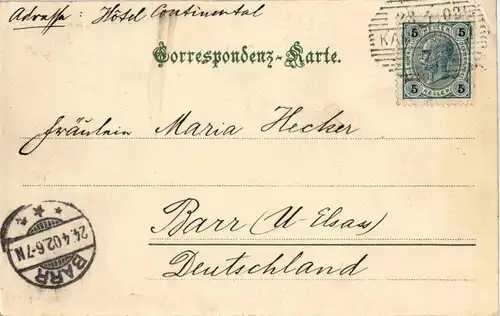 Adresse: Hôtel Continental
23.4.02
KA
5 5
Correspondenz-Karte.
5 HELLER 5
Fräulein Maria Hecker
Barr (U-Elsass)
Deutschland
24.4.02.6-7N
BARR